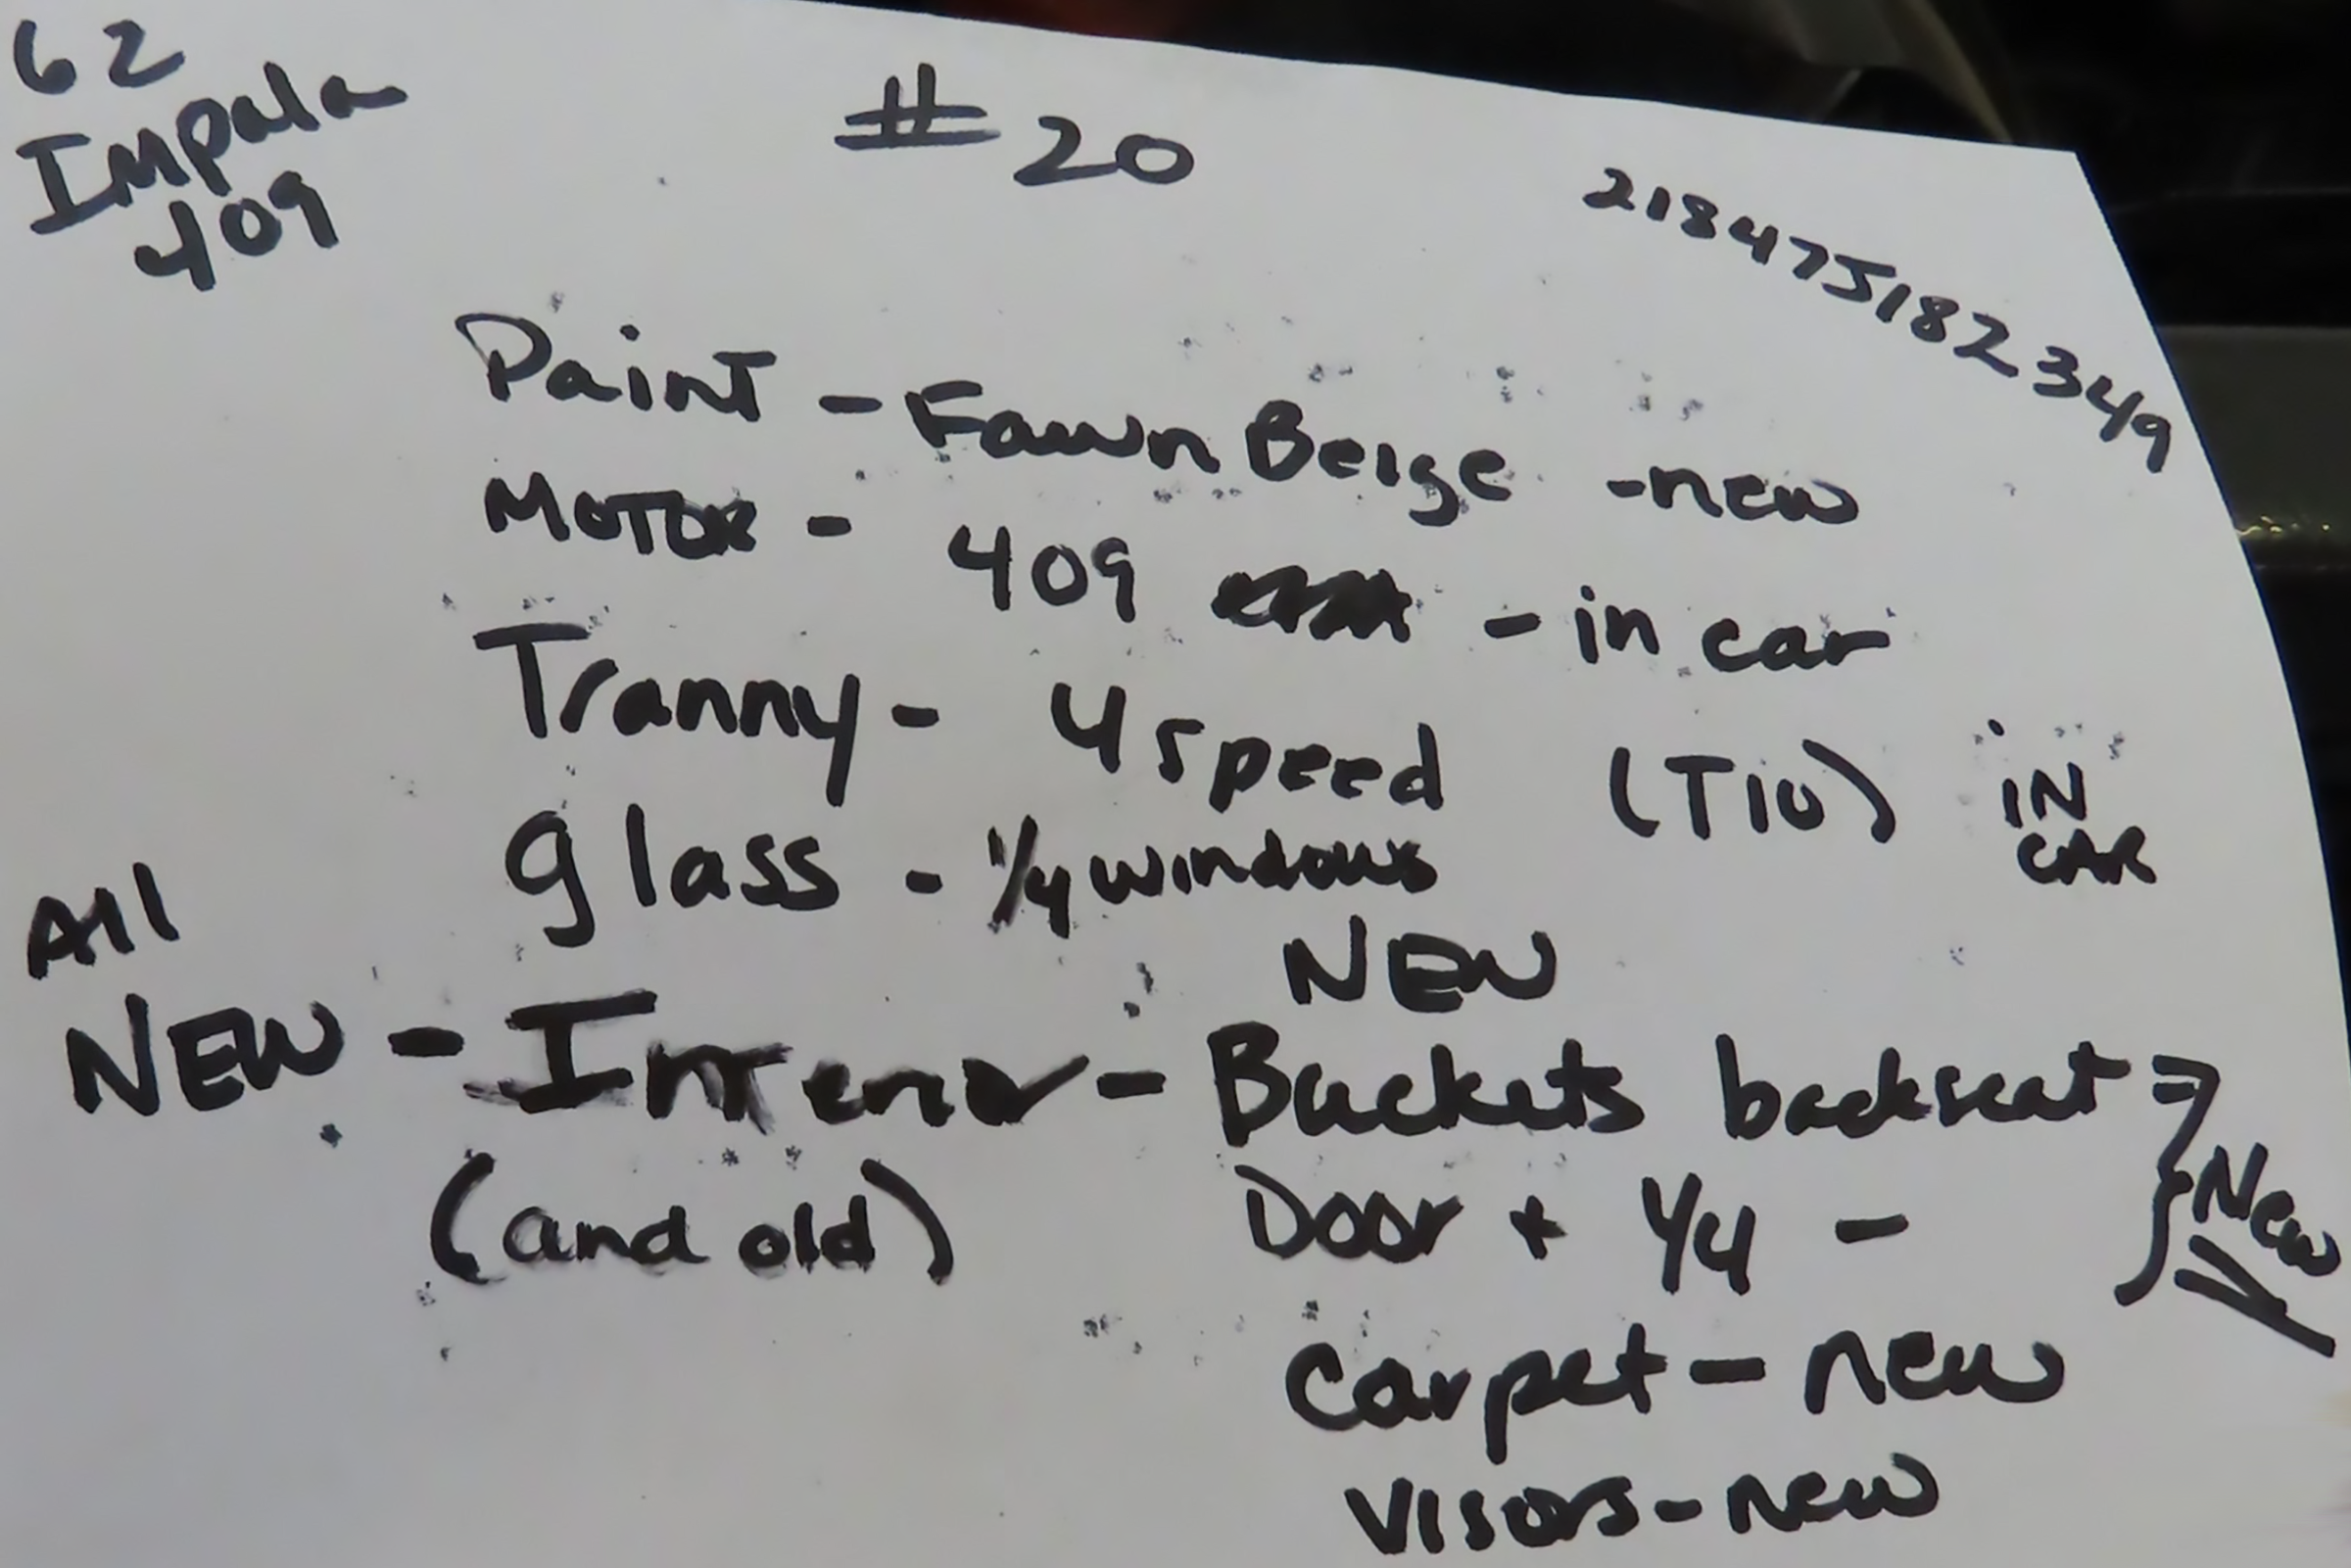 62
Impala
409
#20
218475182349
Paint - Fawn Beige - new
MOTOR - 409 - in car
Tranny - 4 speed (T10) iN CAR
glass - 1/4 windows
NEW
All
NEW - Interior - Buckets backseat
(and old) Door + 1/4 -
New
Carpet - new
Visors - new